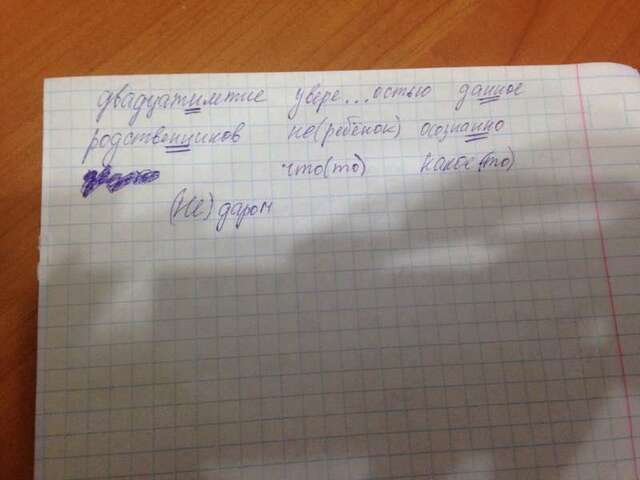 двадцатилетие увере...остью данное
родственников не(ребёнок) осознанно
что(то) какое(то)
(Не) даром